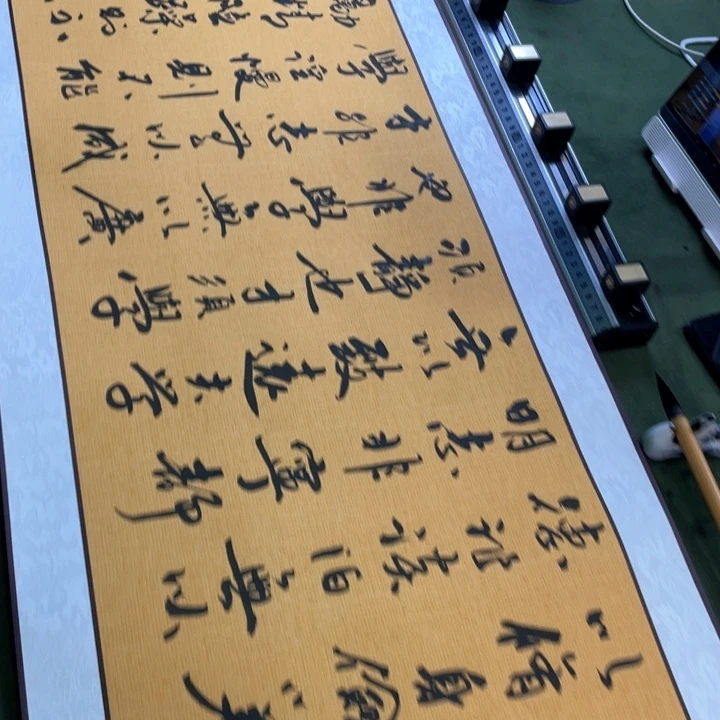 以脩身儉以養
德非淡泊無以
明志非寧靜
無以致遠夫學
須靜也才須學
也非學無以廣
才非志無以成
學淫慢則不能
勵精險躁則不